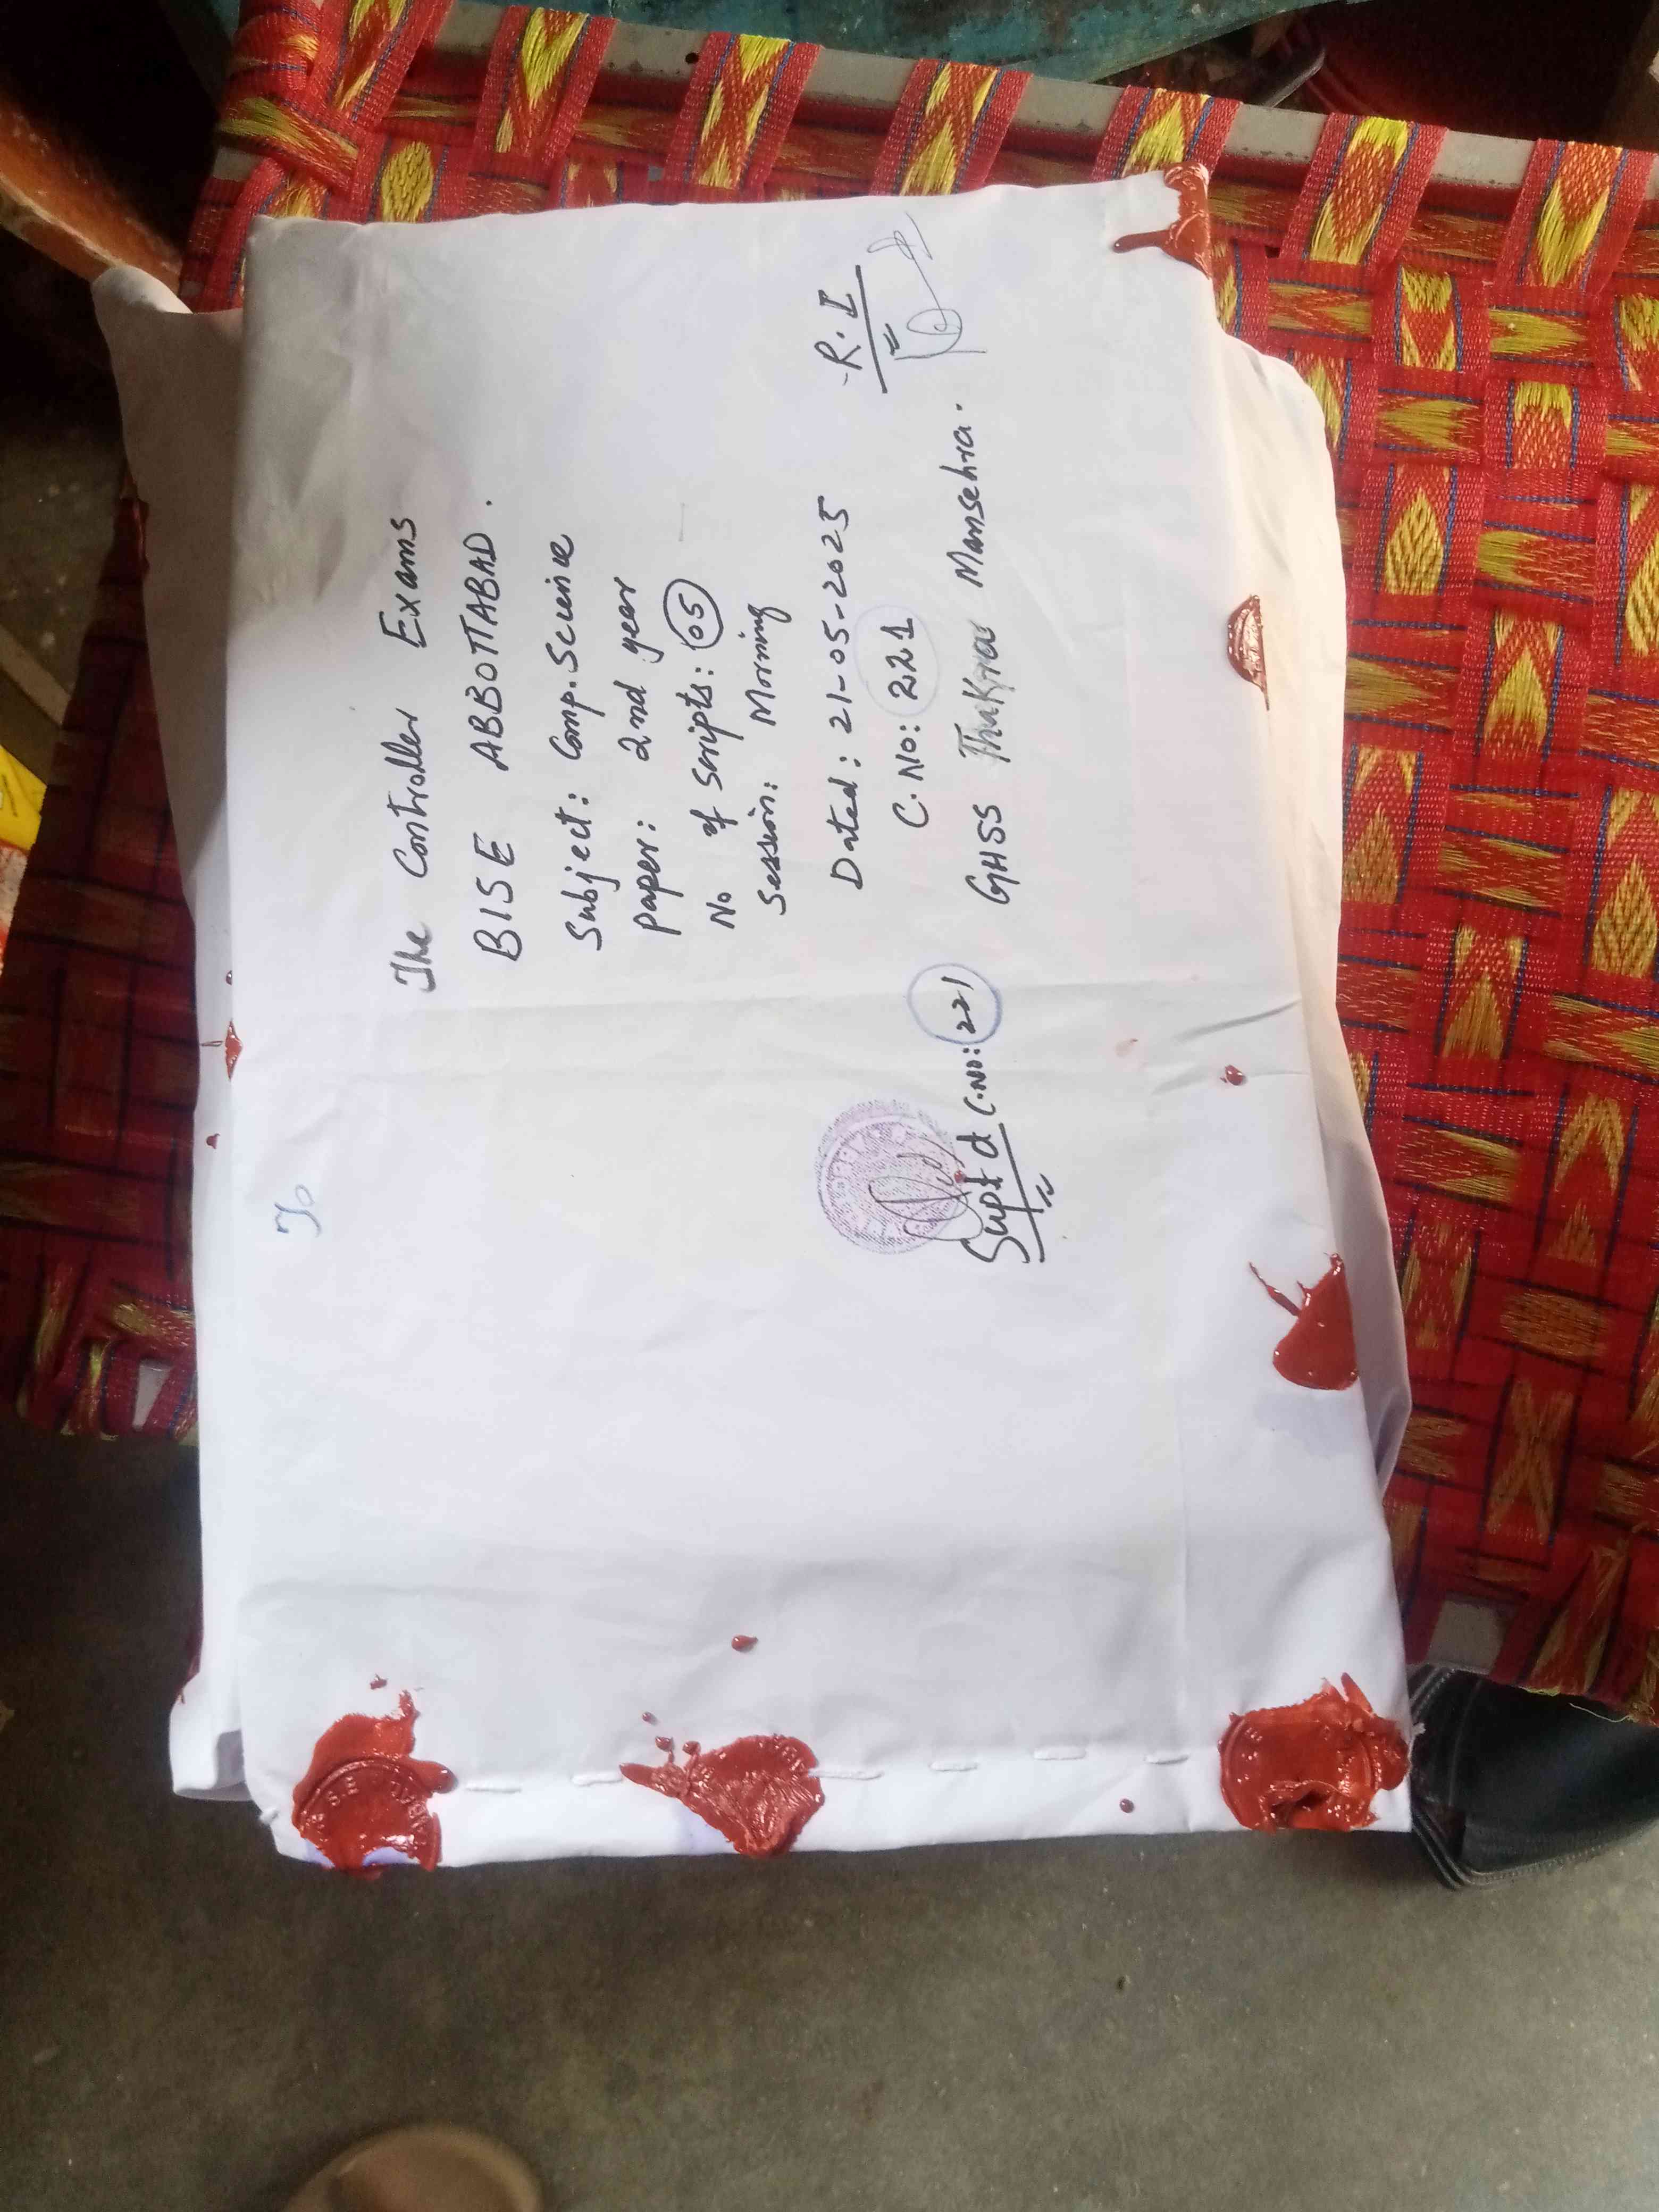 To
The Controller Exams
BISE ABBOTTABAD.
Subject: Comp. Science
paper: 2nd year
No of Scripts: 05
Session: Morning
Dated: 21-05-2025
C.No: 221
GHSS Thakra Mansehra.
R.I
Suptd C.No: 221